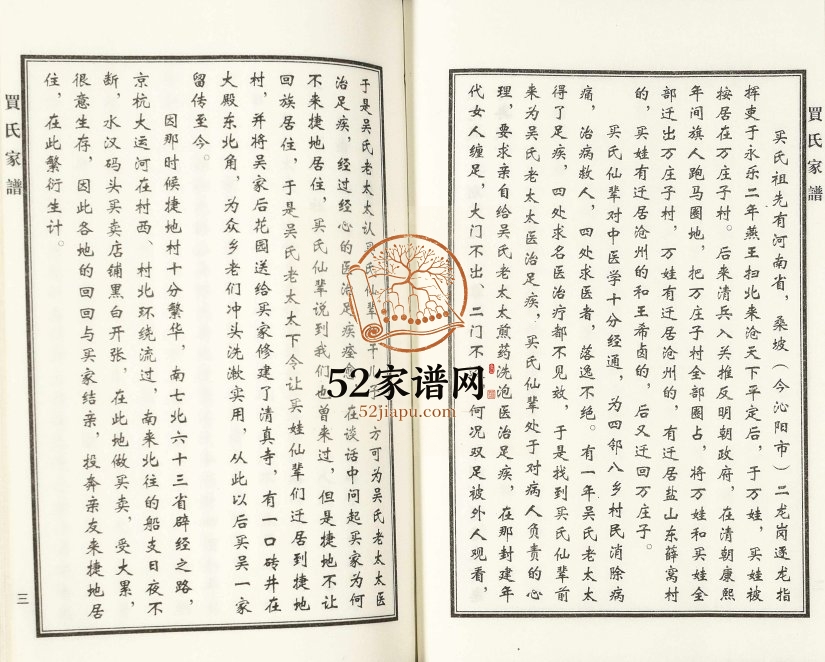 買氏家譜
买氏祖先有河南省，桑坡（今沁阳市）二龙岗逐龙指
挥吏于永乐二年燕王扫北来沧天下平定后，于万娃，买娃被
按居在万庄子村。后来清兵入关推反明朝政府，在清朝康熙
年间旗人跑马圈地，把万庄子村全部圈占，将万娃和买娃全
部迁出万庄子村，万娃有迁居沧州的，有迁居盐山东薛窝村
的，买娃有迁居沧州的和王希卤的，后又迁回万庄子。
买氏仙辈对中医学十分经通，为四邻八乡村民消除病
痛，治病救人，四处求医者，落逸不绝。有一年吴氏老太太
得了足疾，四处求名医治疗都不见效，于是找到买氏仙辈前
来为吴氏老太太医治足疾，买氏仙辈处于对病人负责的心
理，要求亲自给吴氏老太太煎药洗泡医治足疾，在那封建年
代女人缠足，大门不出、二门不 何况双足被外人观看，
于是吴氏老太太认 氏仙辈 干儿子 方可为吴氏老太太医
治足疾，经过经心的医治足疾痊愈 在谈话中问起买家为何
不来捷地居住，买氏仙辈说到我们也曾来过，但是捷地不让
回族居住，于是吴氏老太太下令让买娃仙辈们迁居到捷地
村，并将吴家后花园送给买家修建了清真寺，有一口砖井在
大殿东北角，为众乡老们冲头洗漱实用，从此以后买吴一家
留传至今。
因那时候捷地村十分繁华，南七北六十三省辟经之路，
京杭大运河在村西、村北环绕流过，南来北往的船支日夜不
断，水汉码头买卖店铺黑白开张，在此地做买卖，受大累，
很意生存，因此各地的回回与买家结亲，投奔亲友来捷地居
住，在此繁衍生计。
買氏家譜
三
52家谱网
52jiapu.com